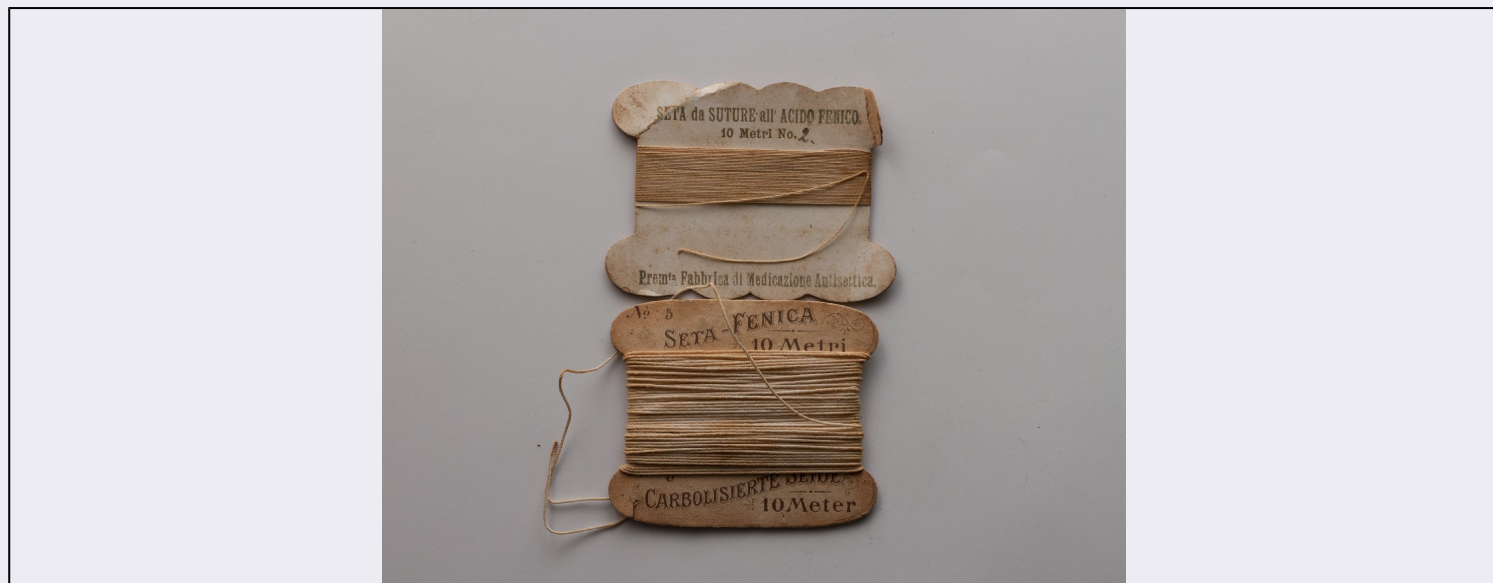 SETA da SUTURE all' ACIDO FENICO.
10 Metri No. 2.
Prem.ta Fabbrica di Medicazione Antisettica.
No. 5
SETA-FENICA
10 Metri
CARBOLISIERTE SEIDE
10 Meter